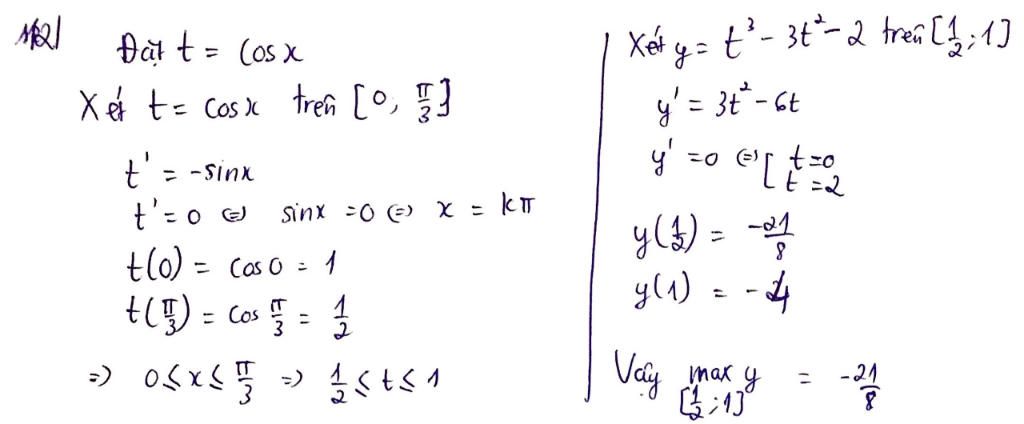 Đặt t = cosx
Xét t = cosx trên [0, π/3]
t' = -sinx
t' = 0 ⇔ sinx = 0 ⇔ x = kπ
t(0) = cos0 = 1
t(π/3) = cos π/3 = 1/2
⇒ 0 ≤ x ≤ π/3 ⇒ 1/2 ≤ t ≤ 1
Xét y = t³ - 3t² - 2 trên [1/2; 1]
y' = 3t² - 6t
y' = 0 ⇔ [ t = 0
t = 2
y(1/2) = -21/8
y(1) = -4
Vậy max y = -21/8
[1/2; 1]